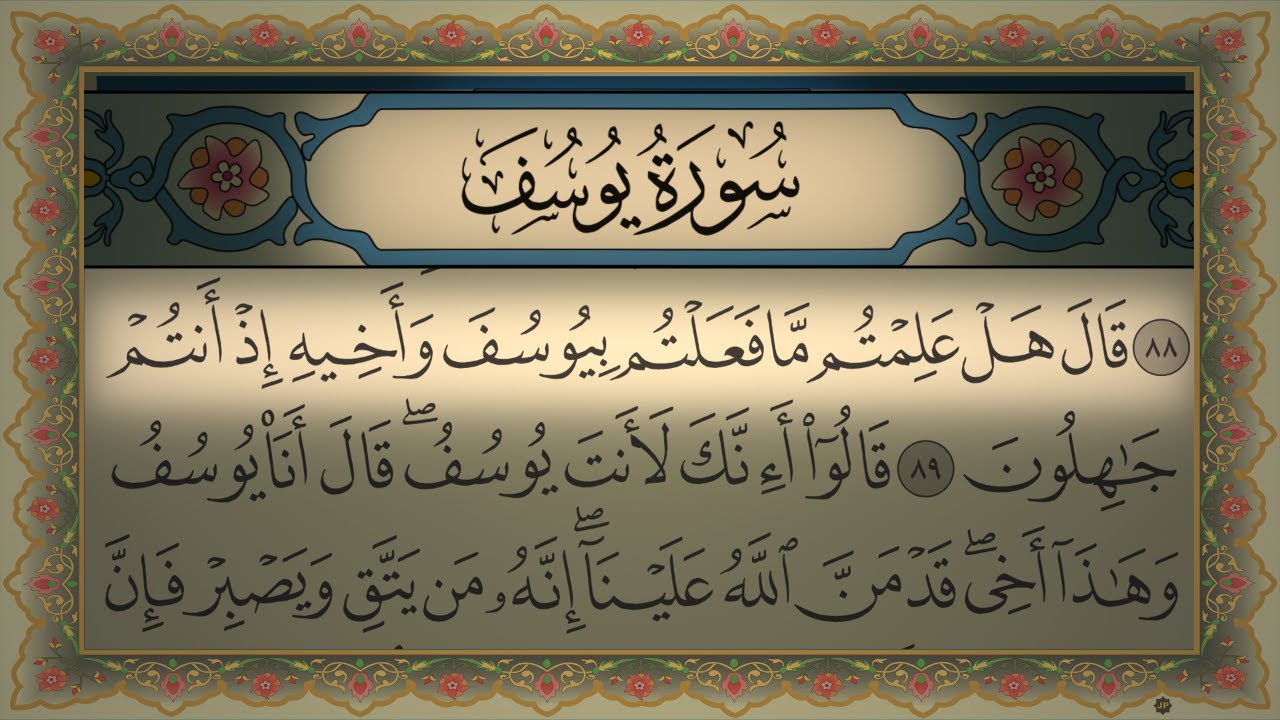 سُورَةُ يُوسُفَ
٨٨ قَالَ هَلْ عَلِمْتُم مَّا فَعَلْتُم بِيُوسُفَ وَأَخِيهِ إِذْ أَنتُمْ
جَٰهِلُونَ ٨٩ قَالُوٓا۟ أَءِنَّكَ لَأَنتَ يُوسُفُ ۖ قَالَ أَنَا۠ يُوسُفُ
وَهَٰذَآ أَخِى ۖ قَدْ مَنَّ ٱللَّهُ عَلَيْنَآ ۖ إِنَّهُۥ مَن يَتَّقِ وَيَصْبِرْ فَإِنَّ
JP